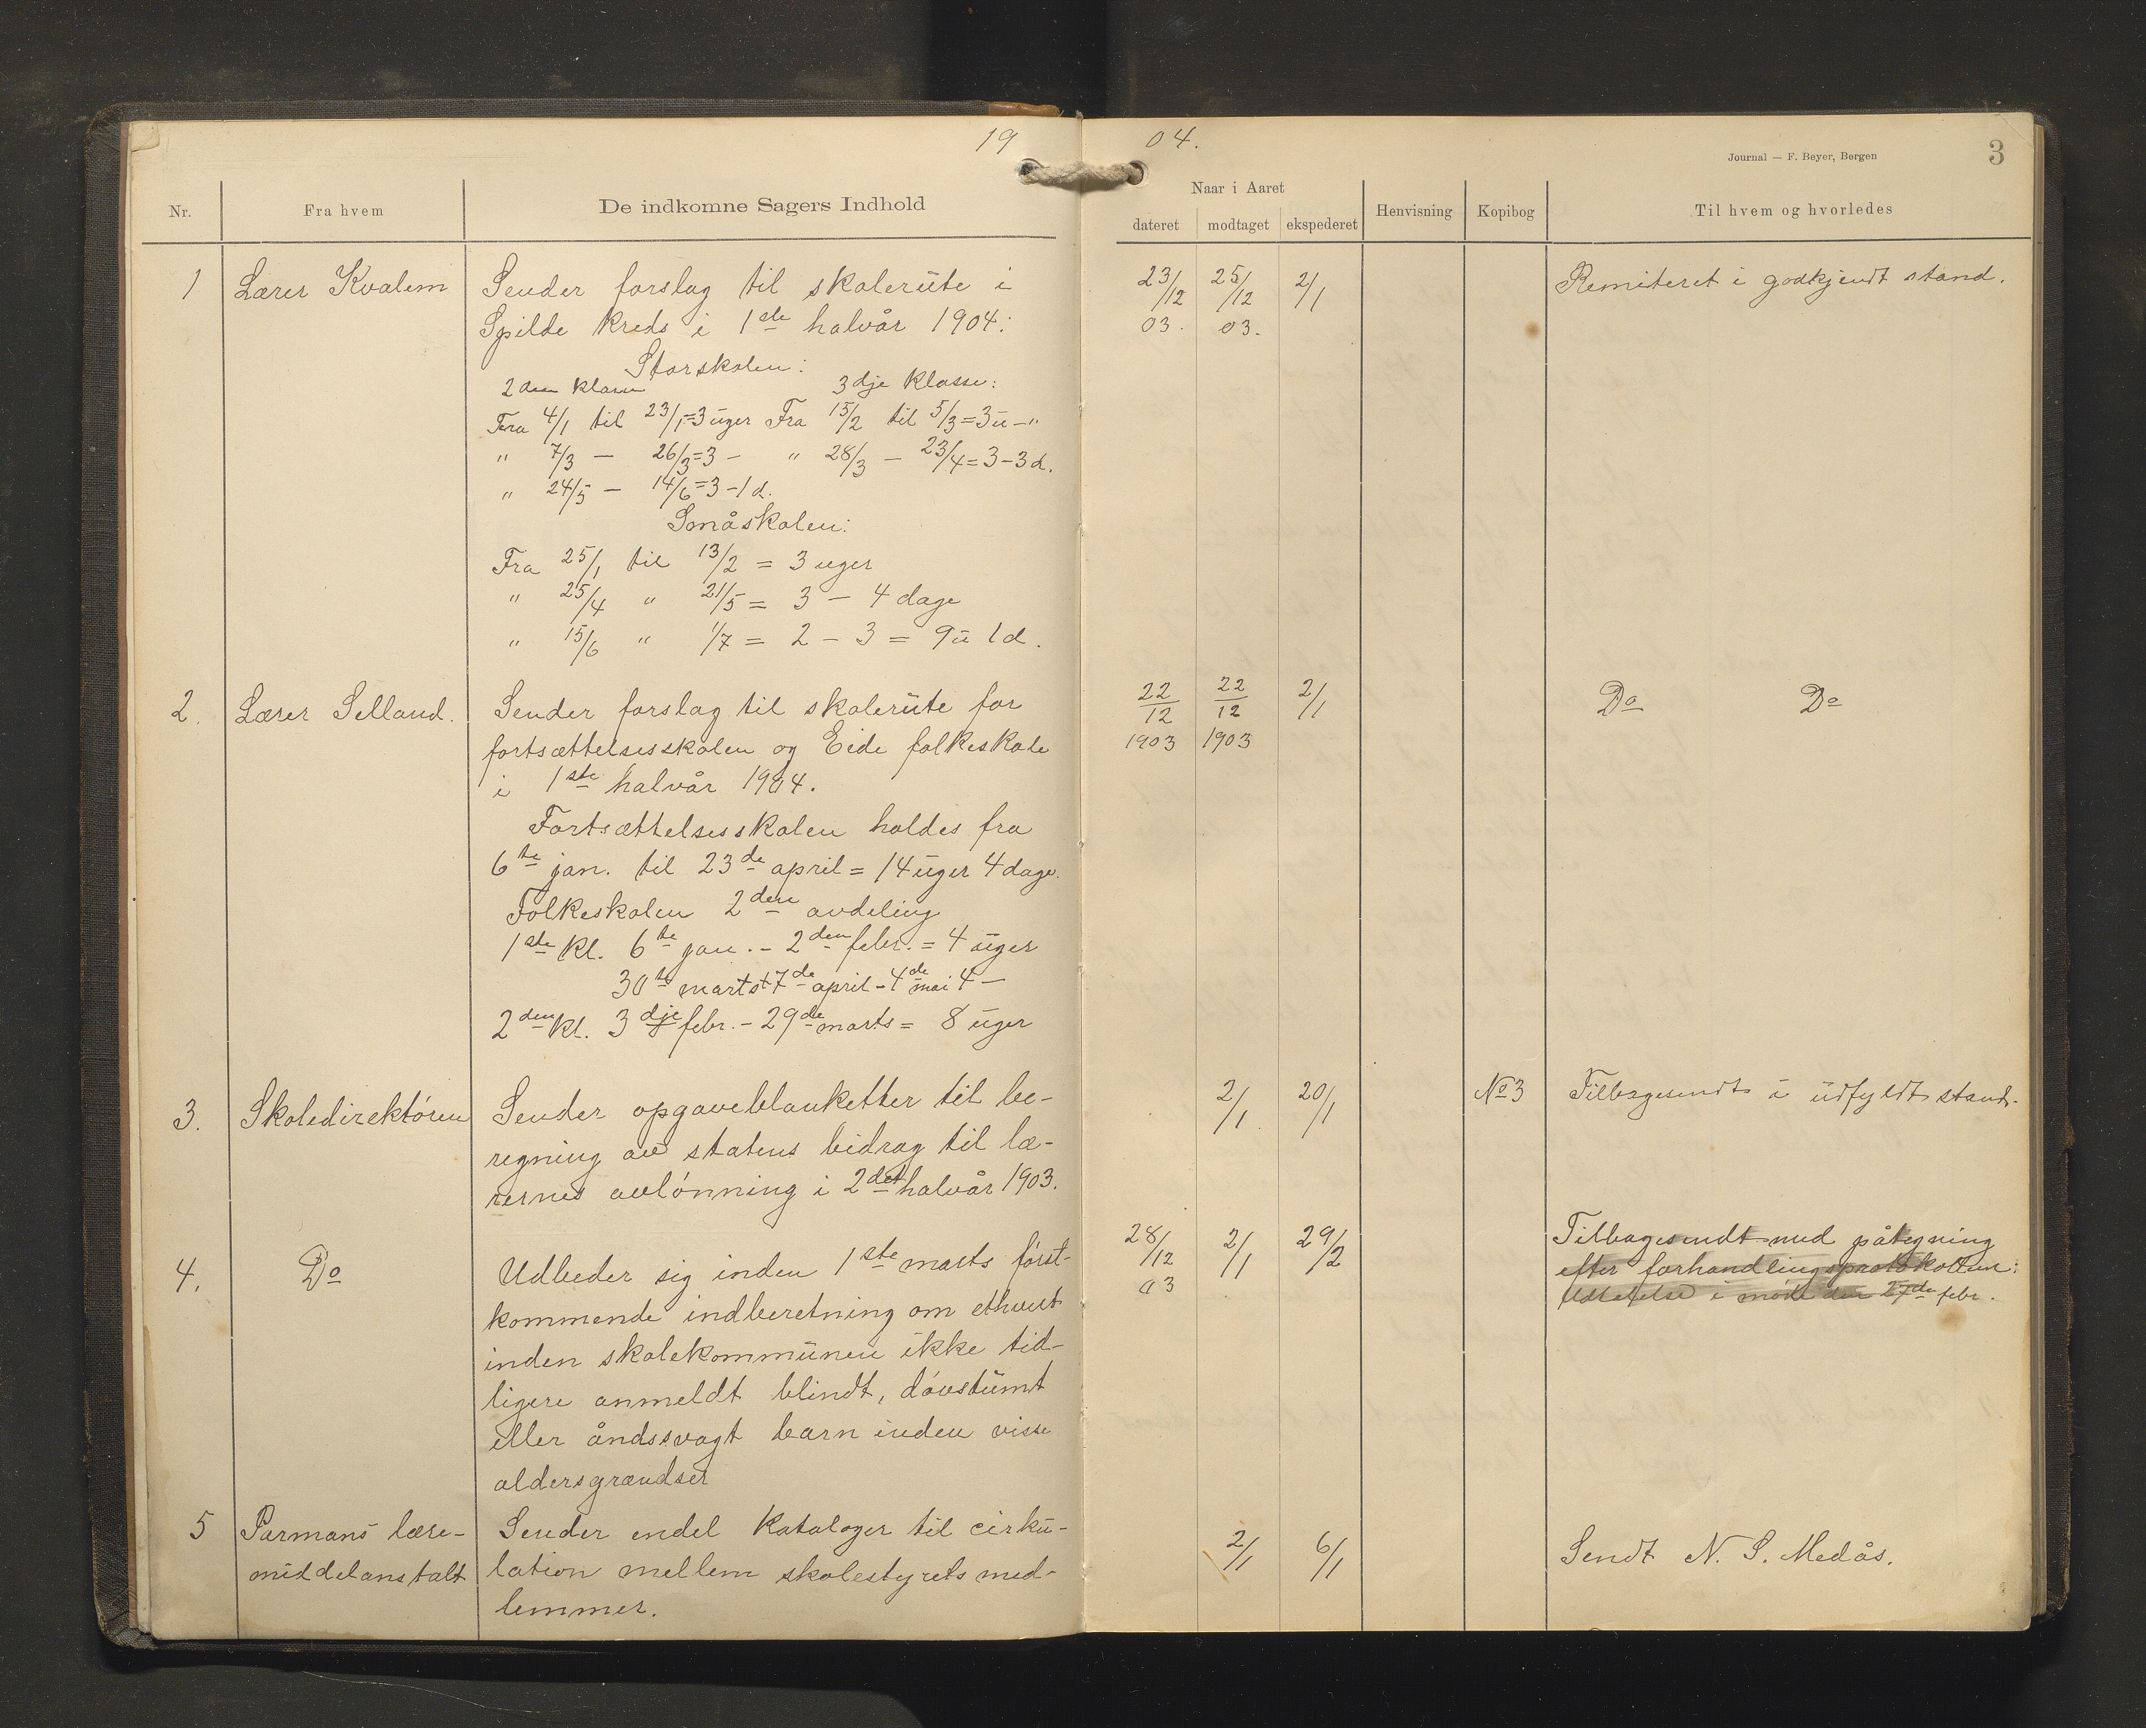 19 04.
Journal — F. Beyer, Bergen
3
Nr. Fra hvem De indkomne Sagers Indhold
Naar i Aaret
dateret modtaget ekspederet Henvisning Kopibog Til hvem og hvorledes
1 Lærer Kvalem Sender forslag til skolerute i 23/12 25/12 2/1 Remiteret i godkjendt stand.
Spilde kreds i 1ste halvår 1904: 03. 03.
Storskolen:
2den klasse 3dje klasse:
Fra 4/1 til 23/1=3 uger Fra 15/2 til 5/3=3u-"
" 7/3 — 26/3=3 - " 28/3 — 23/4=3-3d.
" 24/5 — 14/6=3-1d.
Småskolen:
Fra 25/1 til 13/2 = 3 uger
" 25/4 " 21/5 = 3 — 4 dage
" 15/6 " 1/7 = 2 — 3 = 9u 1d.
2. Lærer Selland. Sender forslag til skolerute for 22/12 22/12 2/1 Do Do
fortsættelsesskolen og Eide folkeskole 1903 1903
i 1ste halvår 1904.
Fortsættelsesskolen holdes fra
6te jan. til 23de april = 14 uger 4 dage.
Folkeskolen 2den avdeling
1ste kl. 6te jan. - 2den febr. = 4 uger
30te marts + 7de april - 4de mai 4 —
2den kl. 3dje febr. - 29de marts = 8 uger
3. Skoledirektóren Sender opgaveblanketter til be- 2/1. 20/1 No 3 Tilbagesendt i udfyldt stand.
regning av statens bidrag til læ-
rernes avlónning i 2det halvår 1903.
4. Do Udbeder sig inden 1ste marts fórst- 28/12 2/1 29/2 Tilbagesendt med påtegning
kommende indberetning om ethvert 03 efter forhandlingsprotokollen:
inden skolekommunen ikke tid- Udtalelse i móde den 27de febr.
ligere anmeldt blindt, dóvstumt
eller åndssvagt barn inden visse
aldersgrændser
5 Parmans lære- Sender endel kataloger til cirku- 2/1 6/1 Sendt N. S. Medås.
middelanstalt lation mellem skolestyrets med-
lemmer.